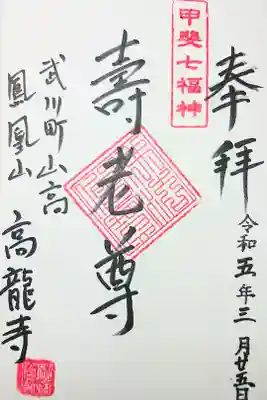 奉拝
令和五年三月廿五日
甲斐七福神
壽老尊
武川町山高
鳳凰山
高龍寺